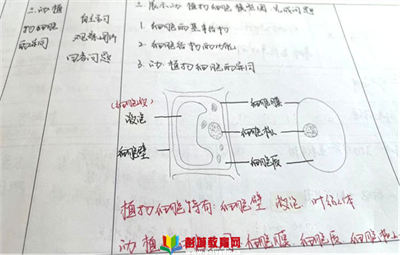 二.动植
物细胞
的异同
自主学习
观察图片
回答问题
二.展示动植物细胞模式图 完成问题
1.细胞的基本结构
2.细胞各部的功能
3.动.植物细胞的异同
(细胞液)
液泡
细胞壁
细胞膜
细胞核
细胞质
植物细胞特有:细胞壁 液泡 叶绿体
动 植 细胞膜 细胞质 细胞核
彭湖教育网